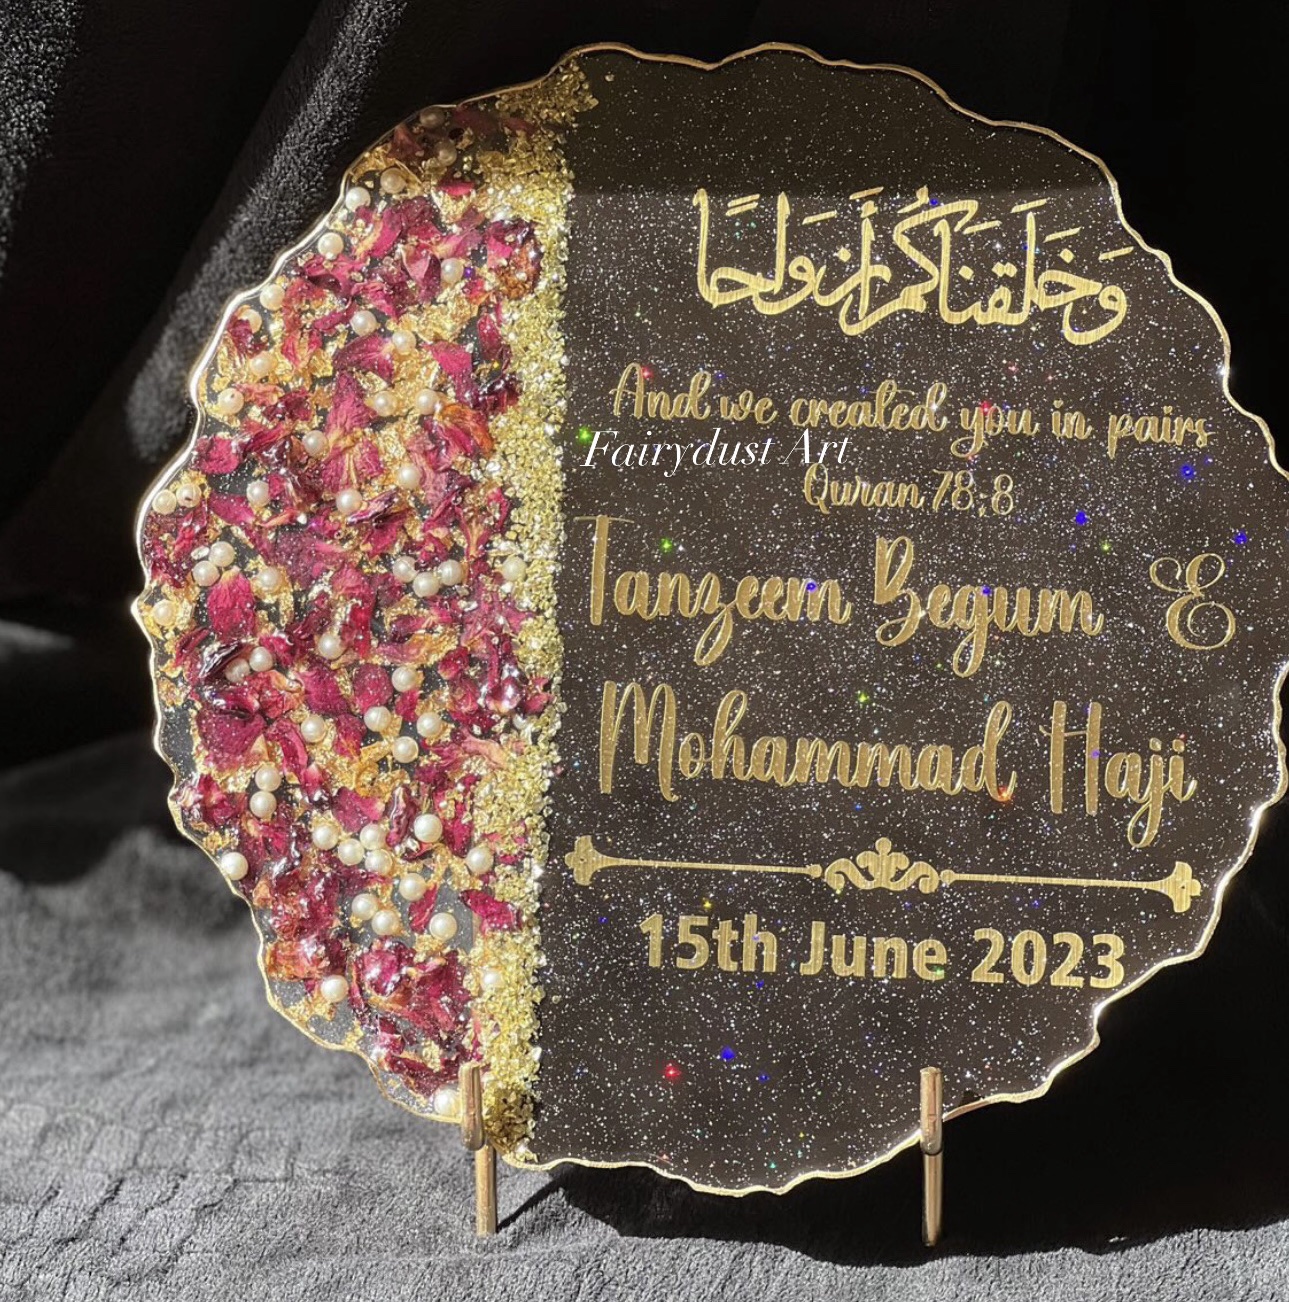 وَخَلَقنَاكُم أَزوَاجًا
And we created you in pairs
Fairydust Art
Quran 78:8
Tanzeem Begum &
Mohammad Haji
15th June 2023